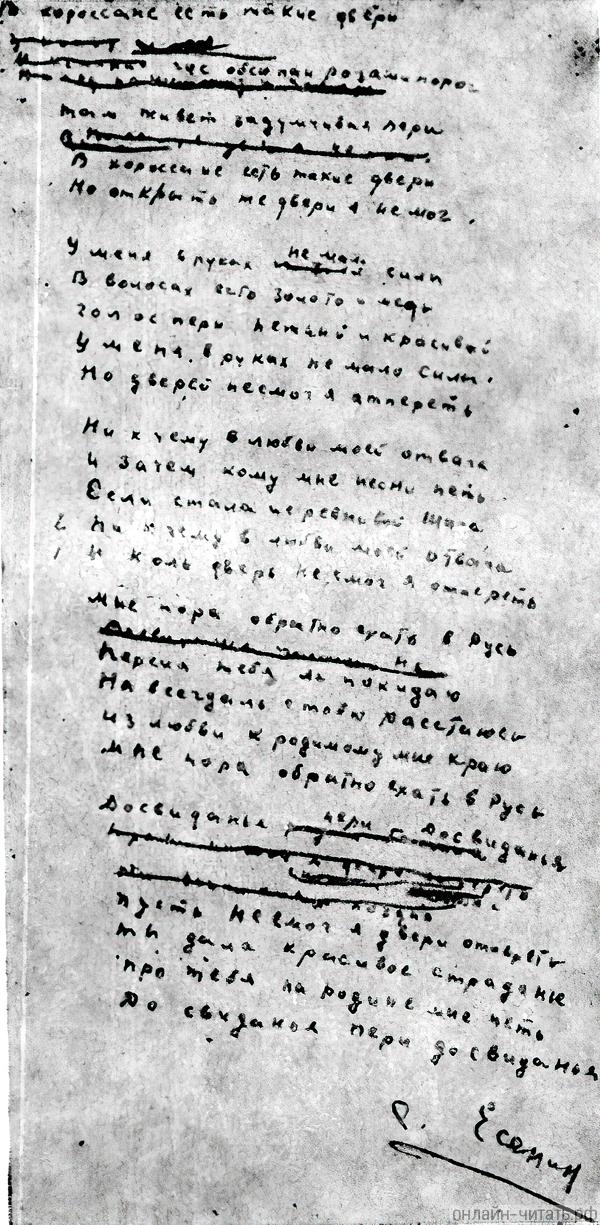 В хороссане есть такие двери
где обсыпан розами порог
Там живет задумчивая пери
В хороссане есть такие двери
Но открыть те двери я не мог.
У меня в руках не мало силы
В волосах есть золото и медь
Голос пери нежный и красивый
У меня в руках не мало силы.
Но дверей не смог я отпереть
Ни к чему в любви моей отвага
И зачем кому мне песни петь
Если стала не ревнивой Шага
2 Ни к чему в любви моей отвага
1 И коль дверь не смог я отпереть
Мне пора обратно ехать в Русь
Персия тебя ль покидаю
На всегдаль с тобою расстаюсь
Из любви к родимому мне краю
Мне пора обратно ехать в Русь
Досвиданья пери Досвиданья
Пусть не смог я двери отпереть
Ты дала красивое страданье
Про тебя на родине мне петь
До свиданья пери до свиданья
С. Есенин
онлайн-читать.рф